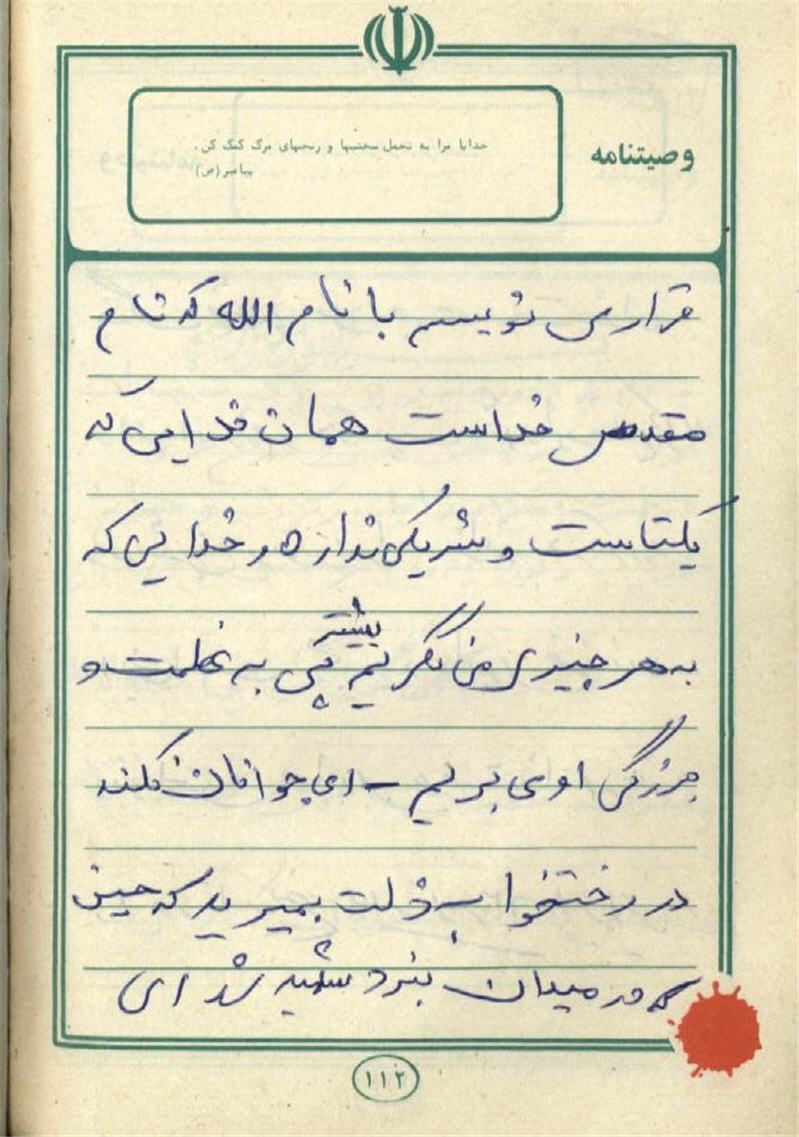 وصیتنامه
خدایا مرا به تحمل سختیها و رنجهای مرگ کمک کن.
پیامبر (ص)
قرار می نویسم با نام الله که نام
مقدس خداست همان خدایی که
یکتاست و شریکی نداره و خدایی که
به هر چیزی می نگریم بیشتر پی به عظمت و
بزرگی او می بریم – ای جوانان نکند
در رختخواب ذلت بمیرید که حسین
که در میدان نبرد شهید شد ای
۱۱۲